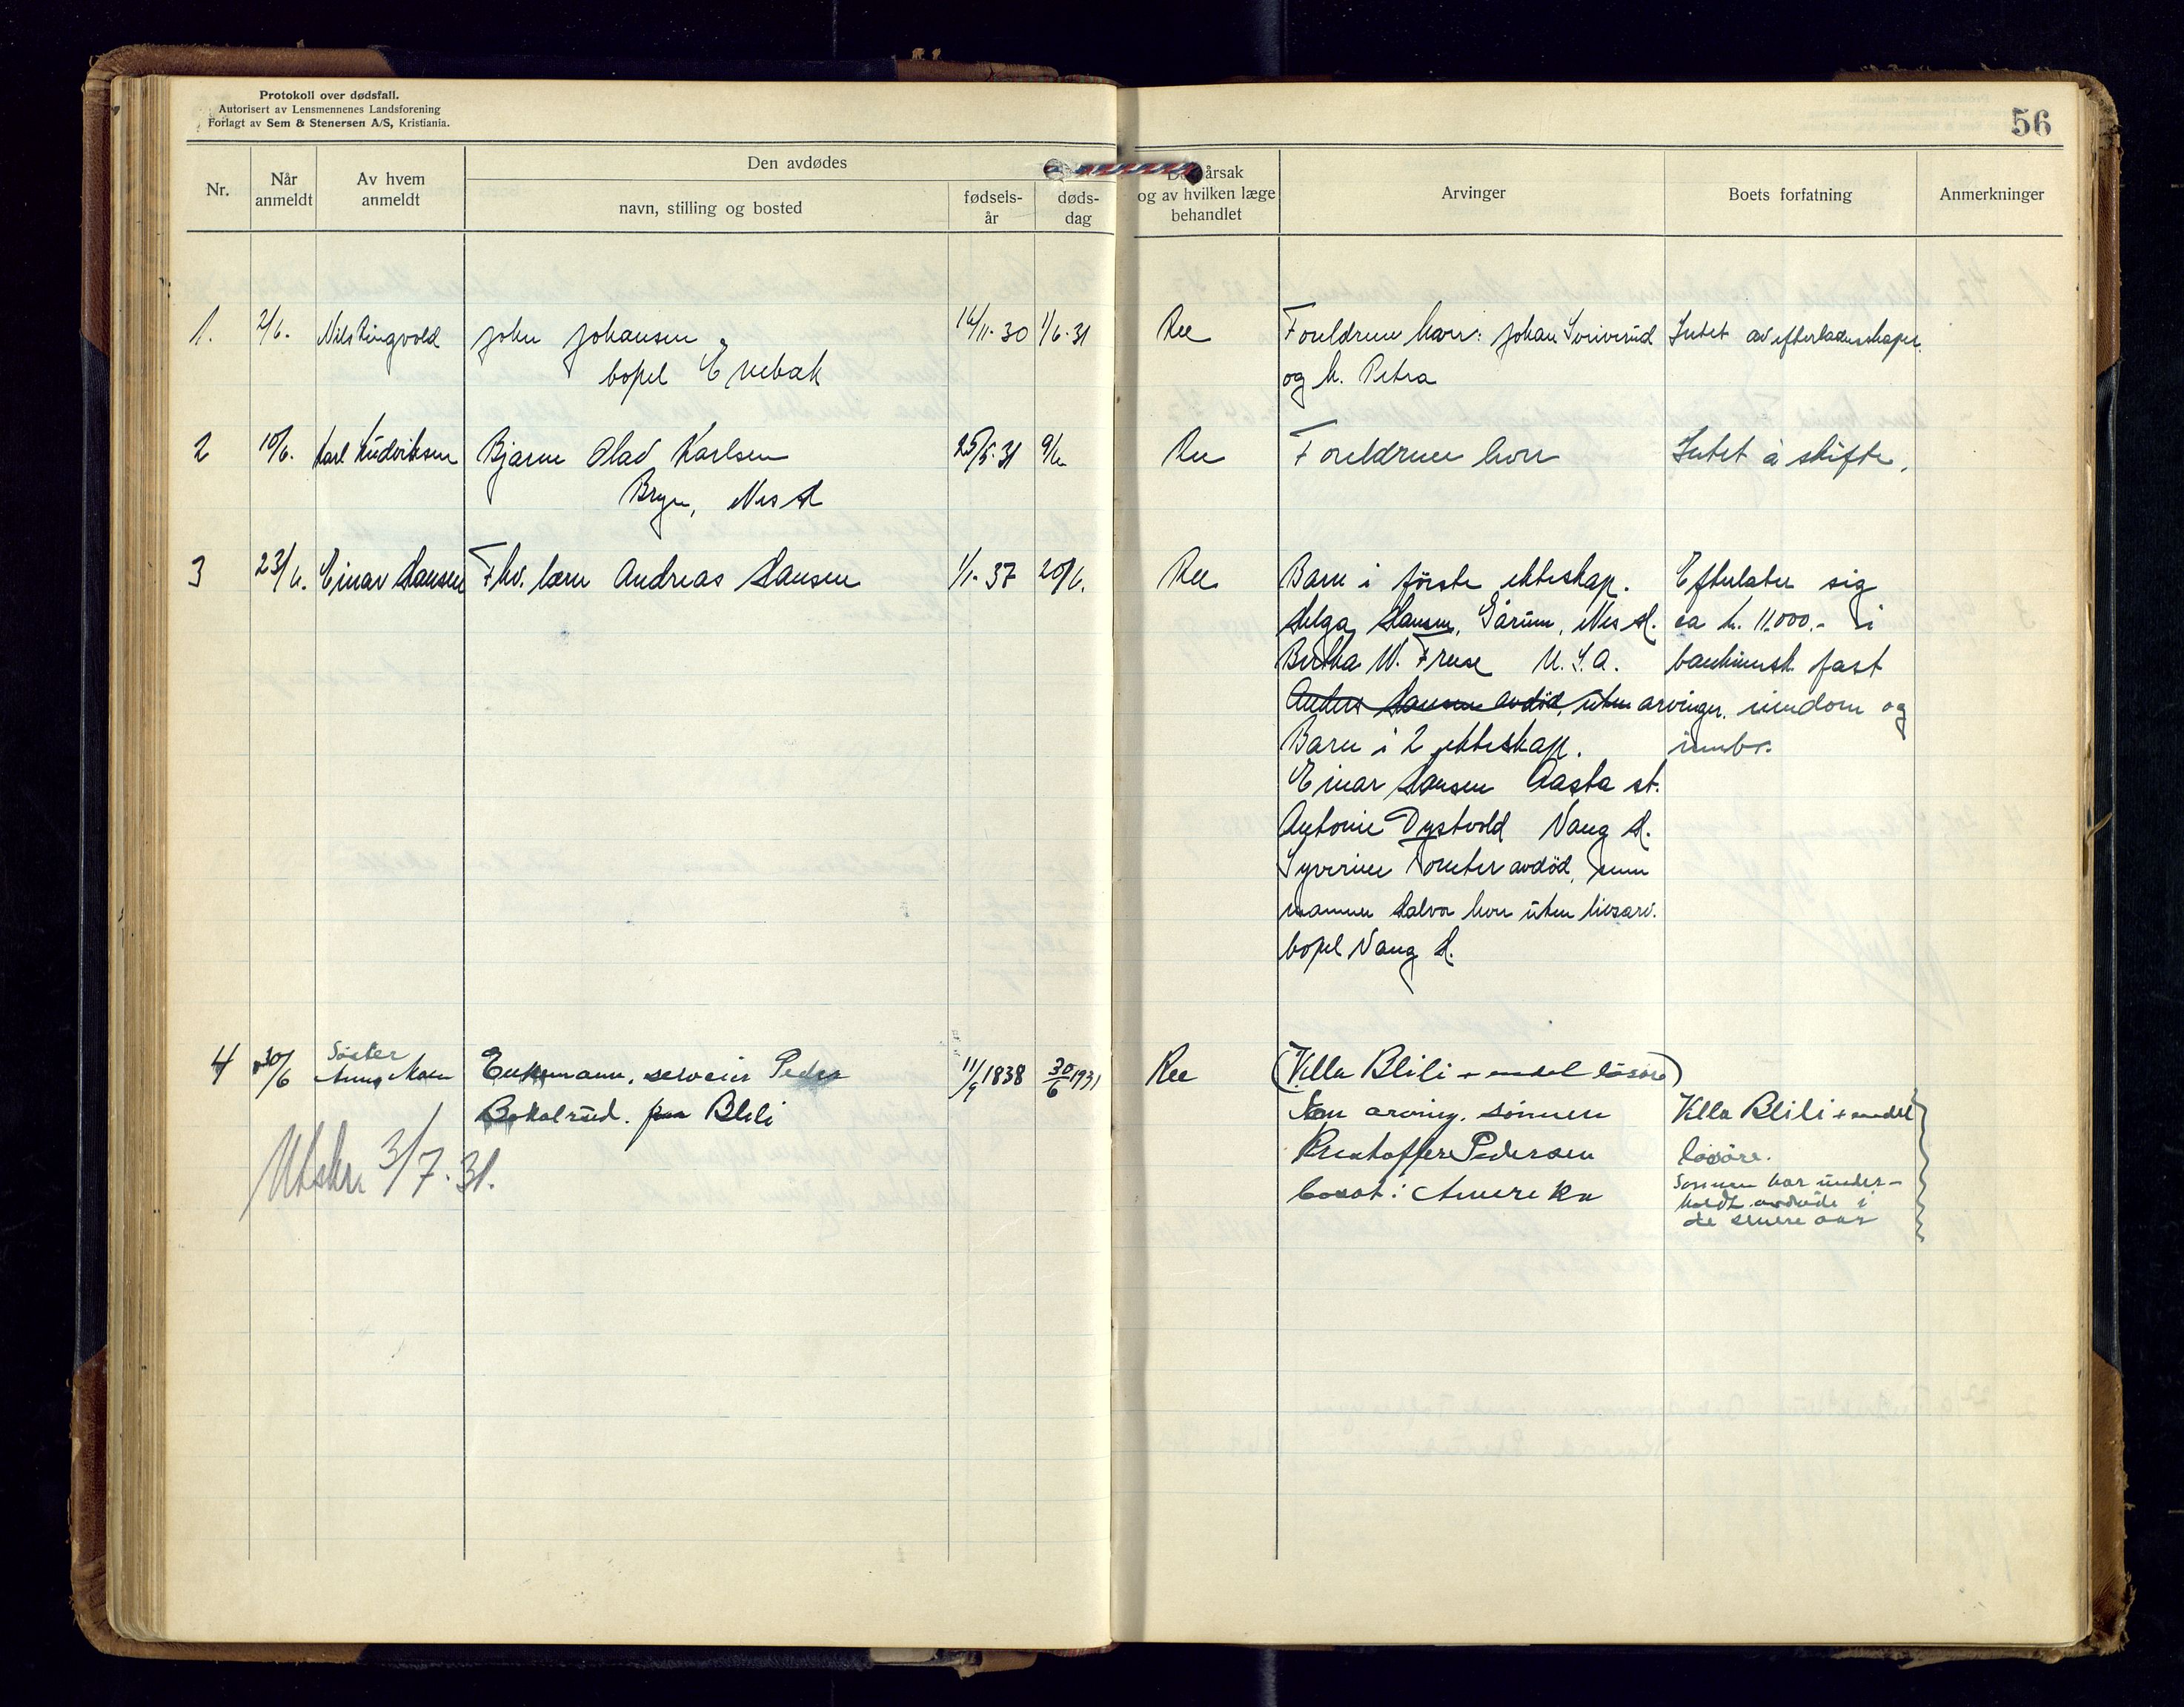 Protokoll over dødsfall.
Autorisert av Lensmennenes Landsforening
Forlagt av Sem & Stenersen A/S, Kristiania.
56
Nr.
Når anmeldt
Av hvem anmeldt
Den avdødes
navn, stilling og bosted
fødsels-år
døds-dag
årsak og av hvilken læge behandlet
Arvinger
Boets forfatning
Anmerkninger
1. 2/6. Nils Ringvold John Johansen 14/11-30 1/6-31 Ree Foreldrene hvor: Johan Sviverud Intet av efterladenskaper.
bopel Enebak og h. Petra
2 10/6. Karl Ludviksen Bjarne Olav Karlsen 25/5-31 9/6. Ree Foreldrene hvor Intet å skifte.
Bryn, Nes H
3 23/6. Einar Hansen Fhv. lærer Andreas Hansen 1/1-37 20/6. Ree Barn i første ekteskap. Efterlater sig
Helga Hansen, Gårum, Nes H. ca kr. 11.000.- i
Bertha W. Freese U.S.A. bankinnsk. fast
Anders Hansen avdød, uten arvinger. eiendom og
Barn i 2 ekteskap. innbo.
Einar Hansen Aasta st.
Antonie Dystvold Vang H.
Syverine Tomter avdød,
mannen Halvor hvor uten livsarv.
bopel Vang H.
4 30/6 Søster Anna Moen Enkemann, selveier Peder 11/9 1838 30/6 1931 Ree (Villa Blili + endel løsøre)
Bokalrud. paa Blili Som arving, sønnen Villa Blili + endel
Utskr. 3/7-31. Kristoffer Pedersen løsøre.
bosat i Amerika Sønnen har under-
holdt avdøde i
de senere aar